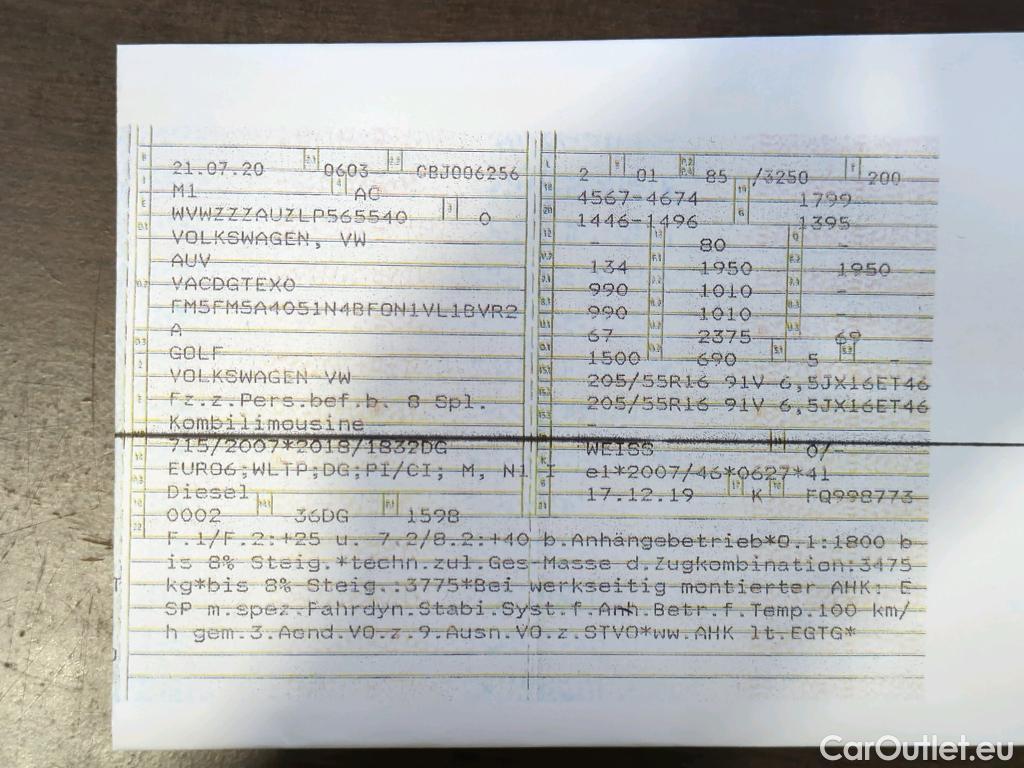 21.07.20 0603 CBJ006256
M1 AC
WVWZZZAUZLP565540 0
VOLKSWAGEN, VW
AUV
VACDGTEX0
FM5FM5A4051N4BFON1VL1BVR2
A
GOLF
VOLKSWAGEN VW
Fz.z.Pers.bef.b. 8 Spl.
Kombilimousine
715/2007*2018/1832DG
EURO6;WLTP;DG;PI/CI; M, N1 I
Diesel
0002 36DG 1598
2 01 85 /3250 200
4567-4674 1799
1446-1496 1395
- 80 -
134 1950 1950
990 1010 -
990 1010 -
67 2375 69
1500 690 5 -
205/55R16 91V 6,5JX16ET46
205/55R16 91V 6,5JX16ET46
-
WEISS 0/-
e1*2007/46*0627*41
17.12.19 K FQ998773
F.1/F.2:+25 u. 7.2/8.2:+40 b.Anhängebetrieb*O.1:1800 b
is 8% Steig.*techn.zul.Ges-Masse d.Zugkombination:3475
kg*bis 8% Steig.:3775*Bei werkseitig montierter AHK: E
SP m.spez.Fahrdyn.Stabi.Syst.f.Anh.Betr.f.Temp.100 km/
h gem.3.Aend.VO.z.9.Ausn.VO.z.STVO*ww.AHK lt.EGTG*
CarOutlet.eu